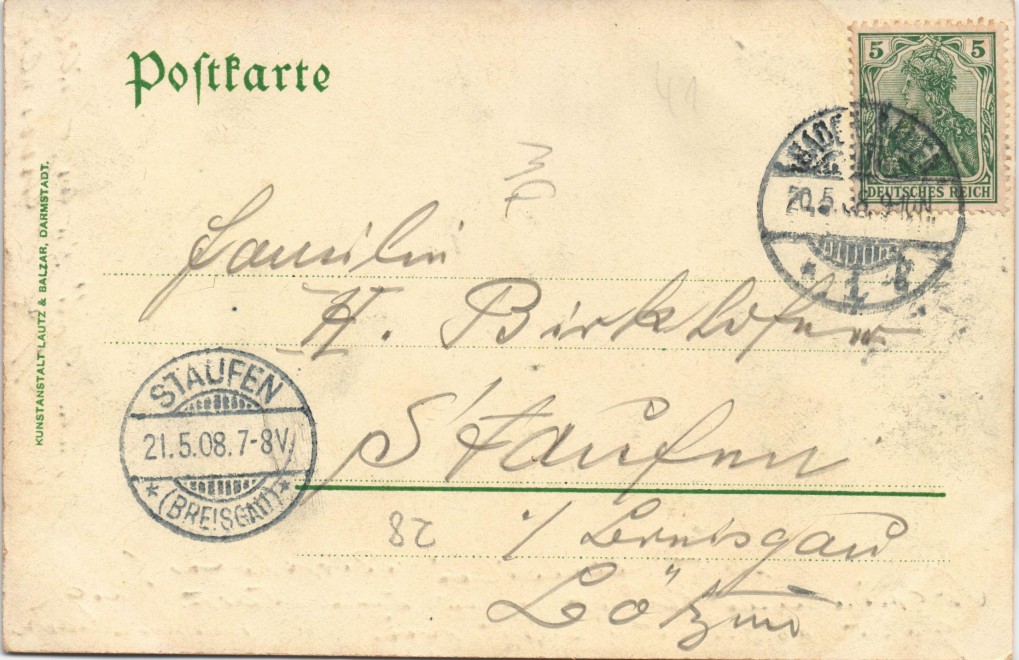 Postkarte
5 5
DEUTSCHES REICH
20.5.08. 9-10N
1
KUNSTANSTALT LAUTZ & BALZAR, DARMSTADT.
Familie
H. Birkhofer
Staufen
i/ Breisgau
STAUFEN
21.5.08.7-8V.
* (BREISGAU) *
28
41